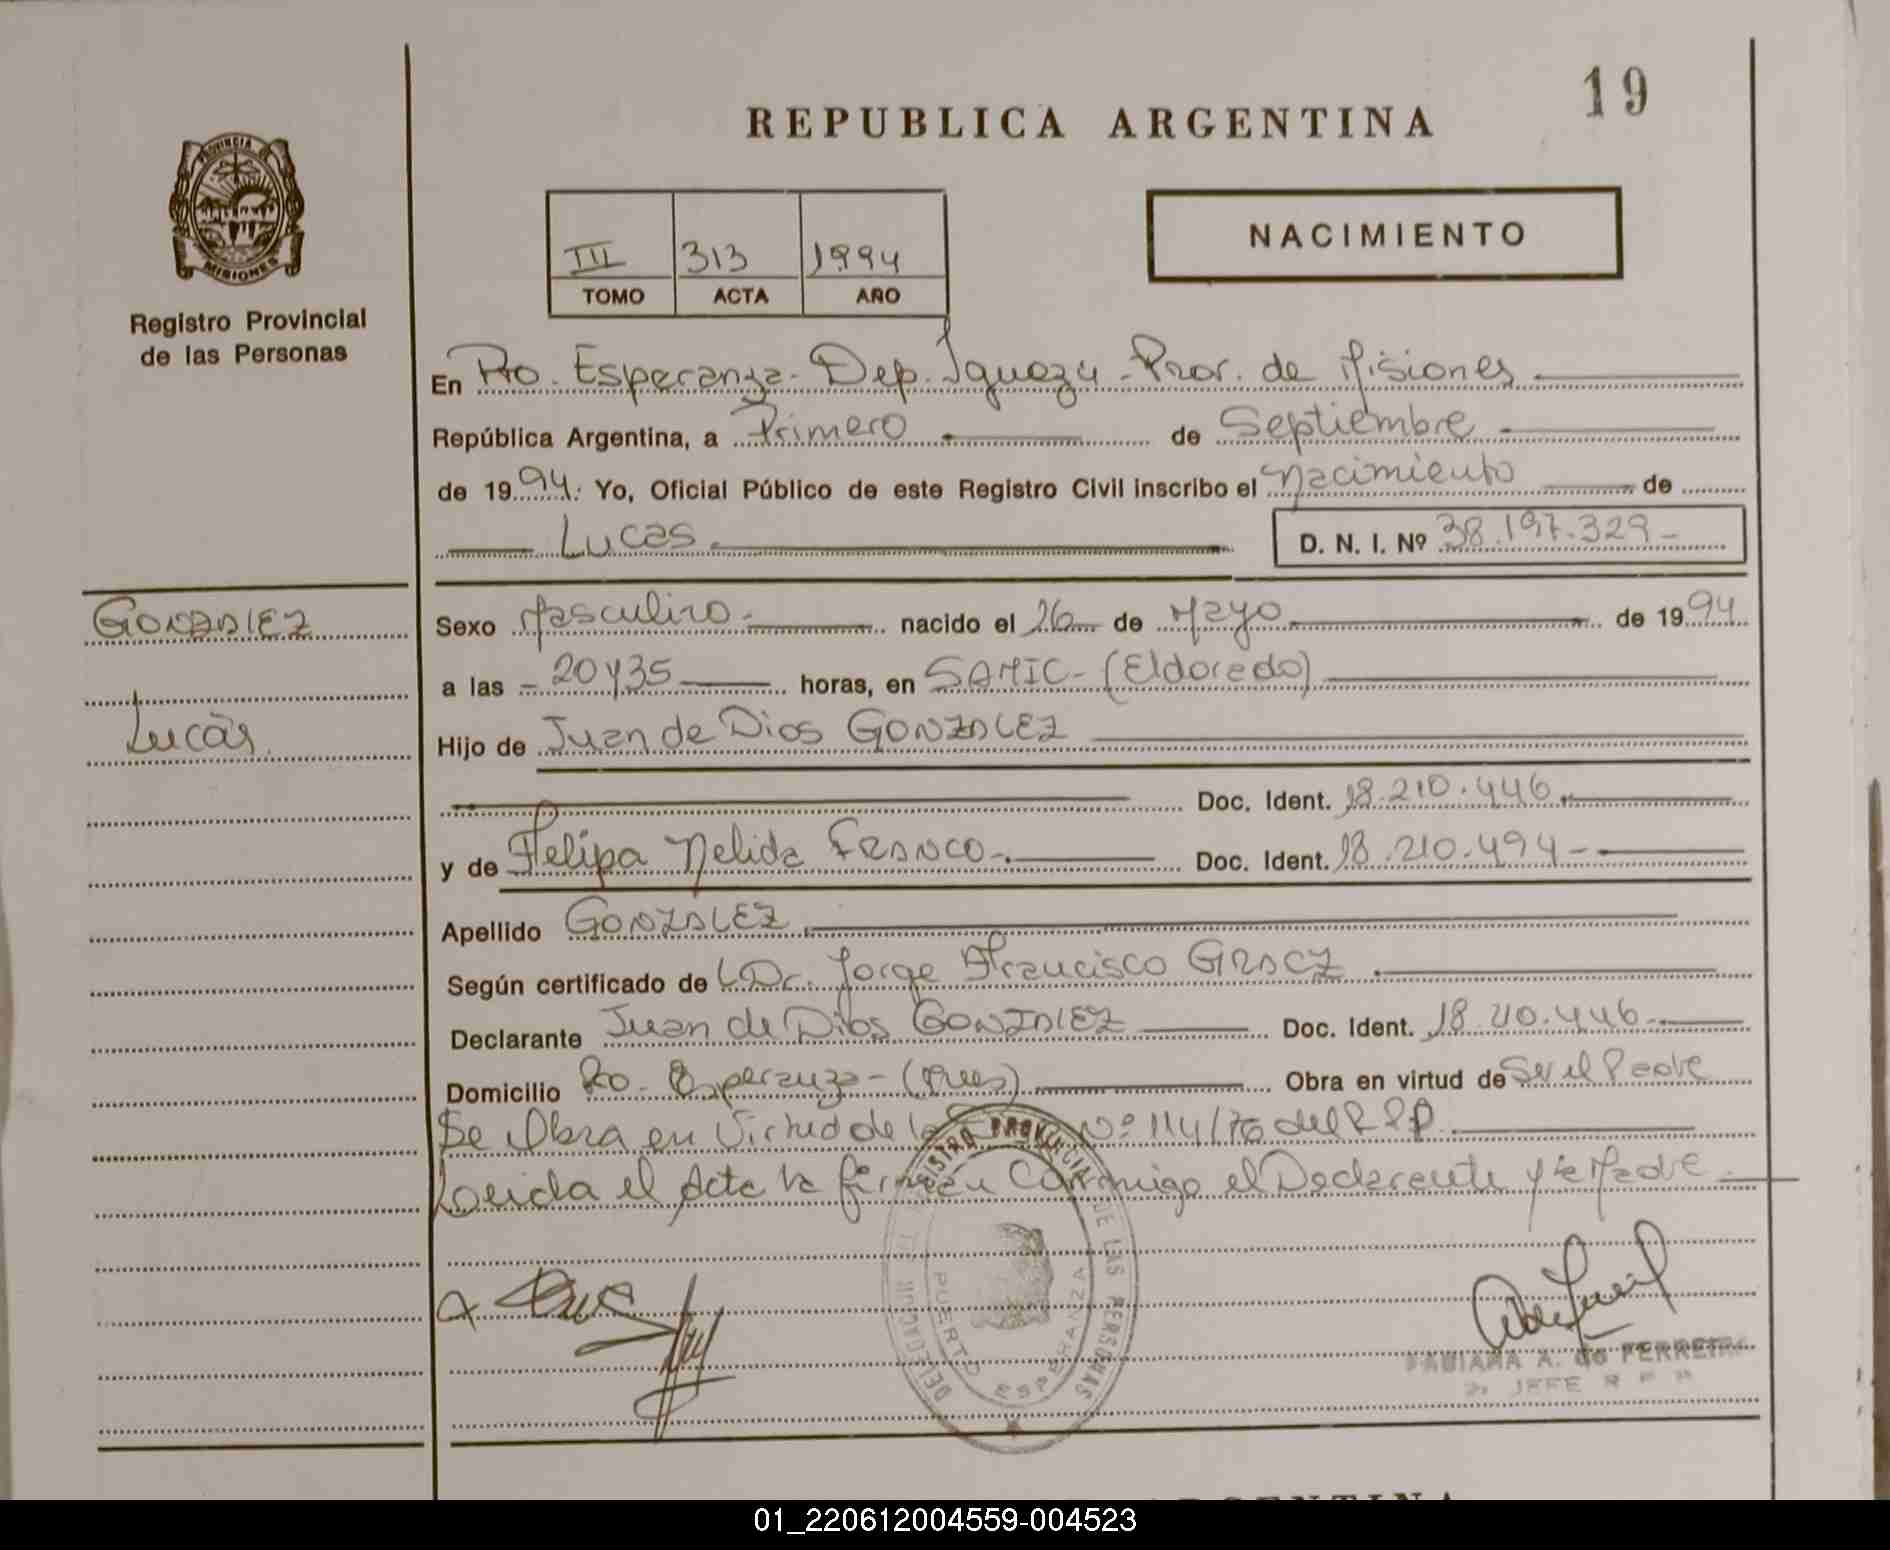 19
REPUBLICA ARGENTINA
PROVINCIA DE
MISIONES
Registro Provincial
de las Personas
III 313 1994
TOMO ACTA AÑO
NACIMIENTO
En Pto. Esperanza - Dep. Iguazu - Prov. de Misiones
República Argentina, a Primero de Septiembre
de 1994. Yo, Oficial Público de este Registro Civil inscribo el Nacimiento de
Lucas. D. N. I. Nº 38.197.329-
GONZALEZ
Lucas.
Sexo Masculino- nacido el 26 de Mayo de 1994
a las - 20 y 35 horas, en SAMIC - (Eldorado)
Hijo de Juan de Dios GONZALEZ
Doc. Ident. 18.210.446
y de Felipa Nelida FRANCO-. Doc. Ident. 18.210.494-
Apellido GONZALEZ
Según certificado de Dr. Jorge Francisco
Declarante Juan de Dios GONZALEZ Doc. Ident. 18.210.446-
Domicilio Pto. Esperanza - Obra en virtud de Ser el Padre
Se Obra en Virtud de la Nº 114/76 del R.R.P.
Leida el Acta la firman Conmigo el Declarante y la Madre
REGISTRO PROVINCIAL DE LAS PERSONAS
DELEGACION
PUERTO ESPERANZA
FABIANA A. de FERREIRA
JEFE R P P
ARGENTINA
01_220612004559-004523